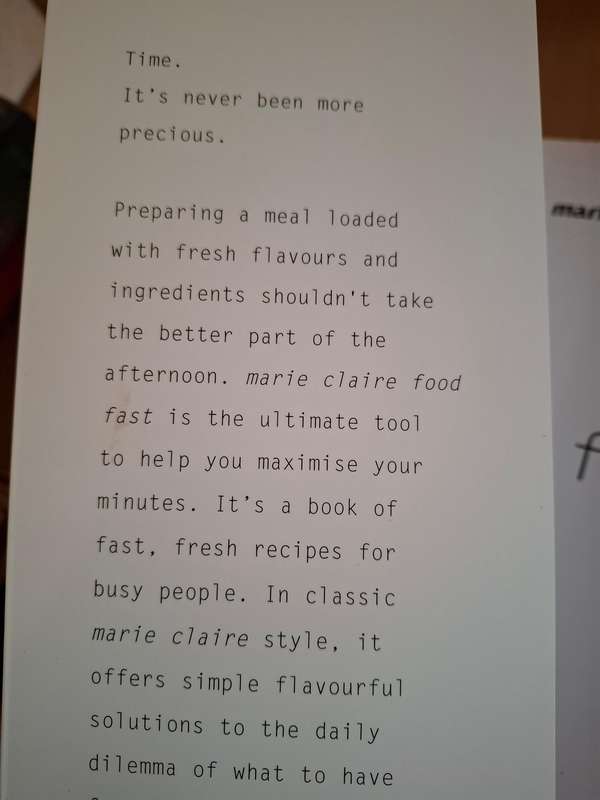 Time.
It's never been more
precious.
Preparing a meal loaded
with fresh flavours and
ingredients shouldn't take
the better part of the
afternoon. marie claire food
fast is the ultimate tool
to help you maximise your
minutes. It's a book of
fast, fresh recipes for
busy people. In classic
marie claire style, it
offers simple flavourful
solutions to the daily
dilemma of what to have